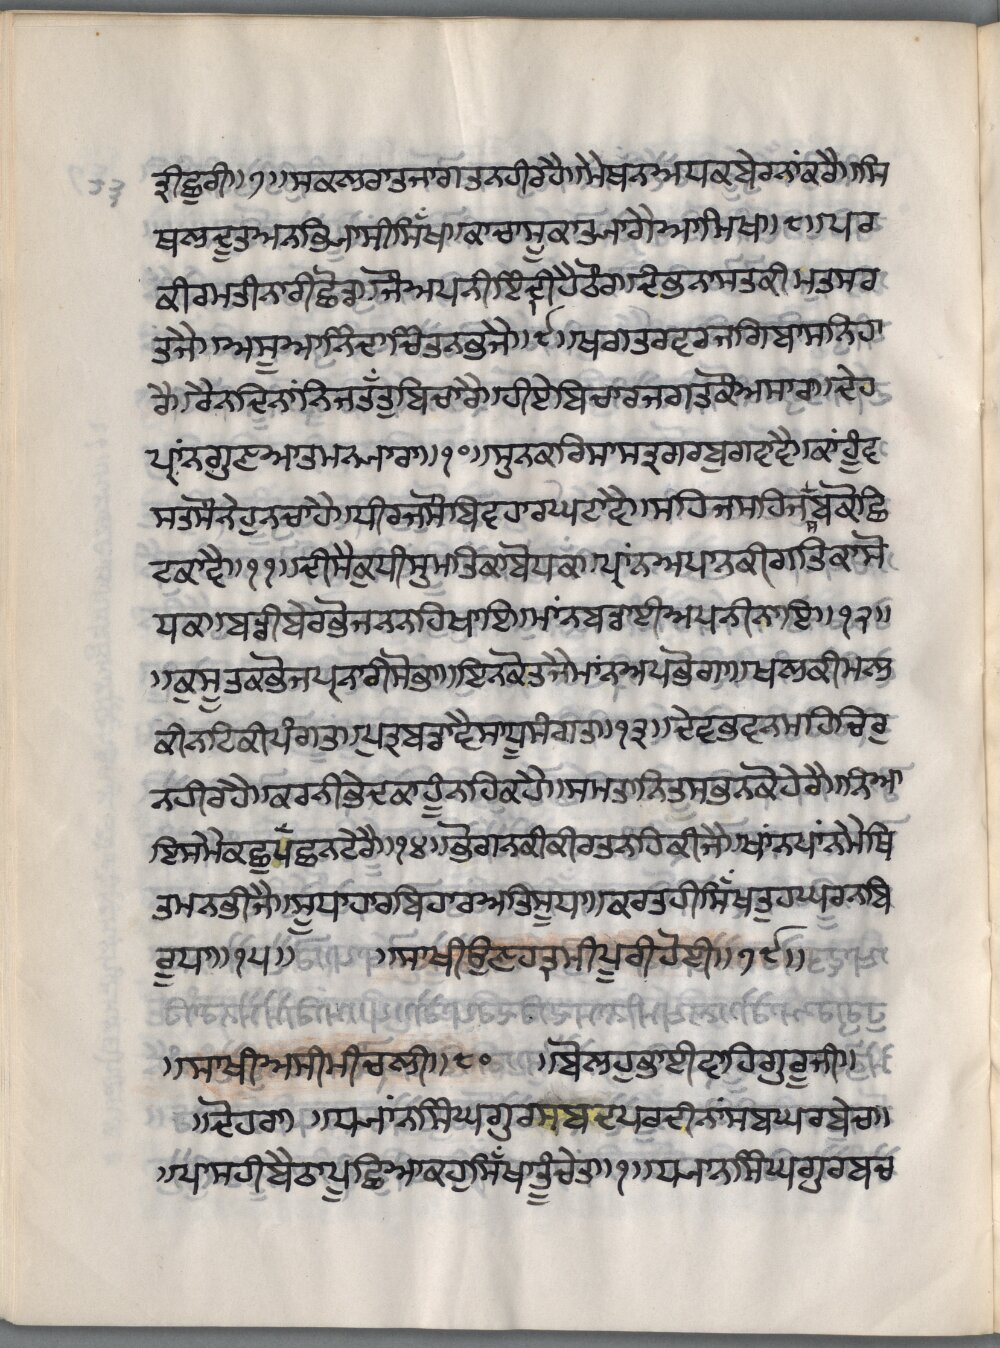 ੜੀਛੁਰੀ॥੭॥ਸਕਲਰਾਤਜਾਗਤਨਹੀਰਹੈ॥ਮੈਥਨਅਧਕਬੇਰਨਾਂਕਰੈ॥ਸਿ
ਥਲਦੂਤਅਨਭਿਆਸੀਸਿੰਘਾ॥ਕਾਚਾਸੂਕਾਤਆਗੈਆਮਿਖਾ॥੮॥ਪਰ
ਕੀਰਮਤੀਨਾਰੀਛੋਰਾ॥ਜੌਅਪਨੀਇੰਦ੍ਰੀਹੈਠੌਰਾ॥ਦੰਭਨਾਮਤਕੀਮਤਸਰ
ਤਜੈ॥ਅਸੂਆਨਿੰਦਾਚਿੰਤਨਭਜੈ॥੯॥ਖਗਤਰਵਰਜਗਿਬਾਸਨਿਹਾ
ਰੈ॥ਰੈਨਦਿਨਾਂਨਿਜਤੱਤੁਬਿਚਾਰੈ॥ਹੀਏਬਿਚਾਰਜਗਤਕੌਅਸਾਰਾ॥ਦੇਹ
ਪ੍ਰਾਂਨਗੁਣਆਤਮਨਆਰਾ॥੧੦॥ਸੁਨਕਰਿਸਾਸਤ੍ਰਗਰਬੁਗਵਾਵੈ॥ਕਾਂਹੂੰਵਿ
ਸਤਸੌਨੇਹੁਨਚਾਹੈ॥ਧੀਰਜਸੌਬਿਵਹਾਰਘਟਾਵੈ॥ਸਹਿਜਸਹਿਜਸੱਬਕੋਛਿ
ਟਕਾਵੈ॥੧੧॥ਦੀਸੈਕੁਧੀਸੁਮਤਿਕਾਬੋਧਕ॥ਪ੍ਰਾਂਨਅਪਾਨਕੀਗਤਿਕਾਸੋ
ਧਕ॥ਬਡੀਬੇਰਭੋਜਨਨਹਿਖਾਇ॥ਮਾਂਨਬਡਾਈਅਪਨੀਨਾਇ॥੧੨॥
॥ਕੁਸੂਤਕਭੋਜਪ੍ਰਨਾਰੀਸੋਭਾ॥ਇਨਕੋਤਜੈਮਾਂਨਅਪਭੋਗਾ॥ਖਲਕੀਮਲ
ਕੀਨਟਿਕੀਪੰਗਤਾ॥ਪੁਤ੍ਰਬਡਾਵੈਸਾਧੂਸੰਗਤਾ॥੧੩॥ਦੇਵਭਵਨਮਹਿਚਿਰੁ
ਨਹੀਰਹੈ॥ਕਰਨੀਭੇਦਕਾਹੂਨਹਿਕਹੈ॥ਸਮਤਾਨਿਤੁਸਭਨਕੋਹੇਰੈ॥ਨਿਆ
ਇਸਮੈਕਛੁਪੱਛਨਟੇਰੈ॥੧੪॥ਭੋਗਨਕੀਕੀਰਤਨਹਿਕੀਜੈ॥ਖਾਂਨਪਾਂਨਮੈਥਿ
ਤਮਨਭੀਜੈ॥ਸੂਧਾਹਾਰਬਿਹਾਰਅਤਿਸੂਧਾ॥ਕਰਤਹੀਸਿੱਖਤੁਹਘਰਨਬਿ
ਰੂਧਾ॥੧੫॥ ॥ਸਾਖੀਉਣਹਤ੍ਰਮੀਪੂਰੀਹੋਈ॥੭੯॥
॥ਸਾਖੀਅਸੀਮੀਚਲੀ॥੮੦ ॥ਬੋਲਹੁਭਾਈਵਾਹਿਗੁਰੂਜੀ॥
॥ਦੋਹਰਾ ॥ਧਆਂਨਸਿੰਘਗੁਰਸਬਦਪਰਦੀਨਾਂਸਬਘਰਬੇਚ॥
॥ਪਾਸਹੀਬੈਠਾਪੂਛਿਆਕਹੁਸਿੱਖਾਤੂੰਚੇਤ॥੧॥ਧਆਨਸਿੰਘਗੁਰਬਚ